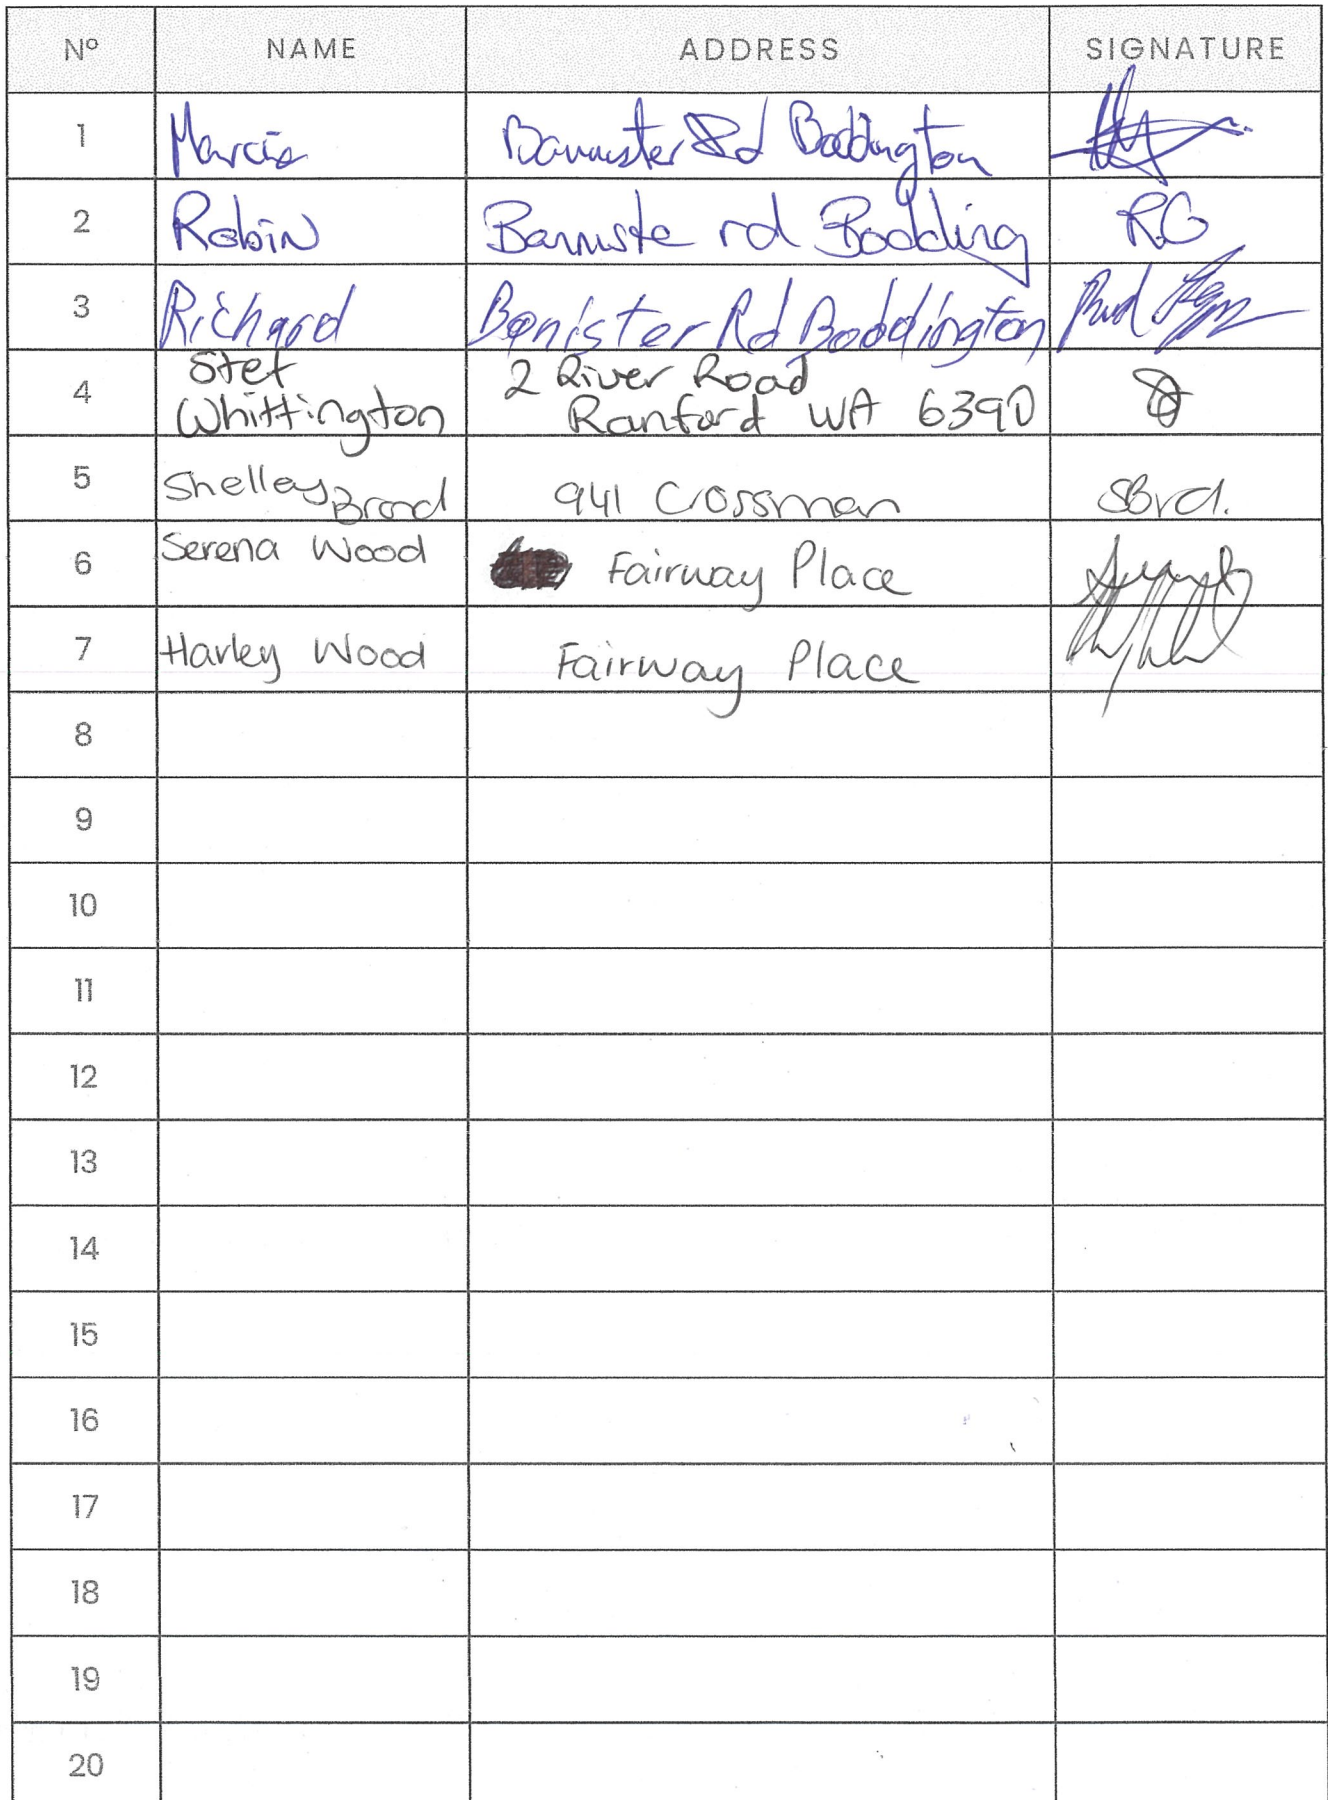 Nº NAME ADDRESS SIGNATURE
1 Marcia Bannister Rd Boddington
2 Robin Banniste rd Bodding RG
3 Richard Bonister Rd Boddington
4 Stef 2 River Road
Whittington Ranford WA 6390
5 Shelley Brad 941 Crossman SBrd.
6 Serena Wood Fairway Place
7 Harley Wood Fairway Place
8
9
10
11
12
13
14
15
16
17
18
19
20